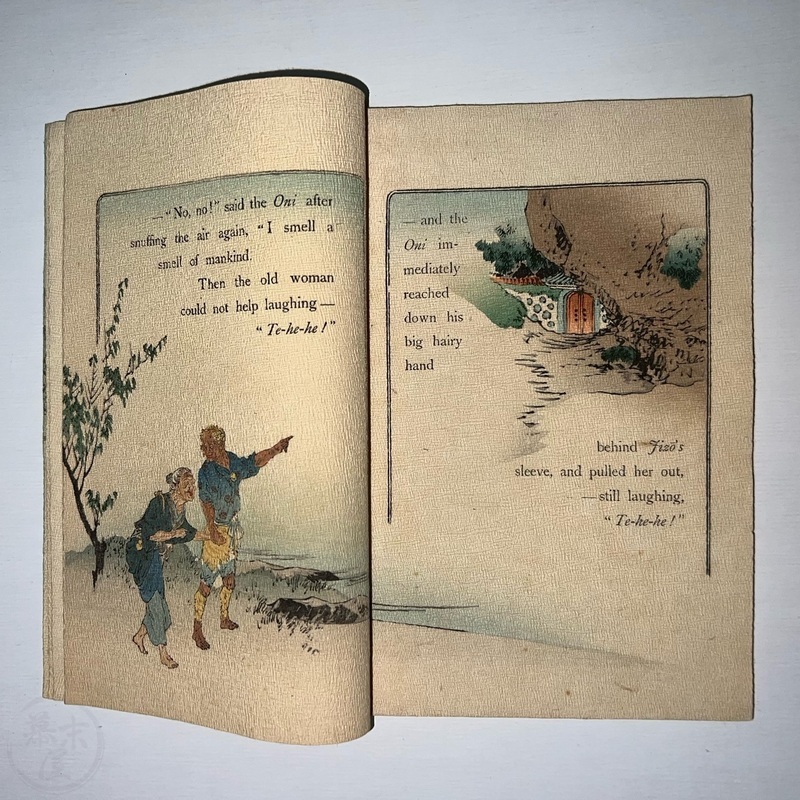 — "No, no!" said the Oni after
snuffing the air again, "I smell a
smell of mankind.
Then the old woman
could not help laughing —
"Te-he-he!"
— and the
Oni im-
mediately
reached
down his
big hairy
hand
behind Jizō's
sleeve, and pulled her out,
— still laughing,
"Te-he-he!"